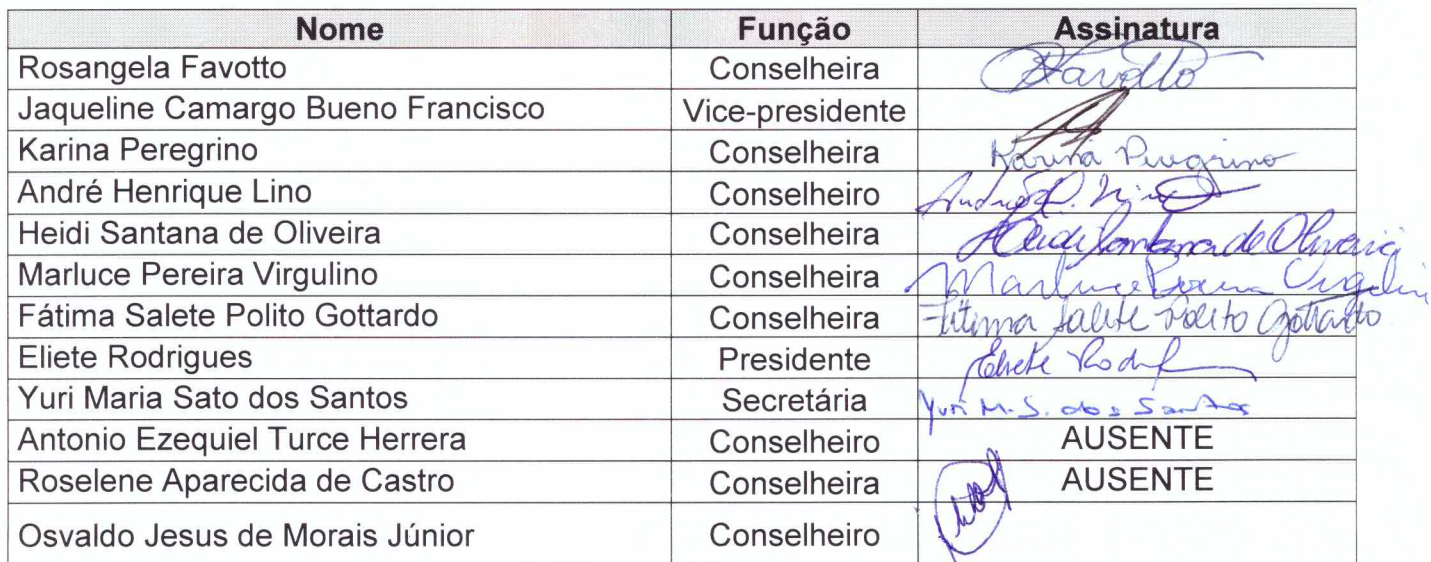 Nome Função Assinatura
Rosangela Favotto Conselheira Favotto
Jaqueline Camargo Bueno Francisco Vice-presidente
Karina Peregrino Conselheira Karina Peregrino
André Henrique Lino Conselheiro André H. Lino
Heidi Santana de Oliveira Conselheira Heidi Santana de Oliveira
Marluce Pereira Virgulino Conselheira Marluce Pereira
Fátima Salete Polito Gottardo Conselheira Fátima Salete Polito Gottardo
Eliete Rodrigues Presidente Eliete
Yuri Maria Sato dos Santos Secretária Yuri M. S. dos Santos
Antonio Ezequiel Turce Herrera Conselheiro AUSENTE
Roselene Aparecida de Castro Conselheira AUSENTE
Osvaldo Jesus de Morais Júnior Conselheiro